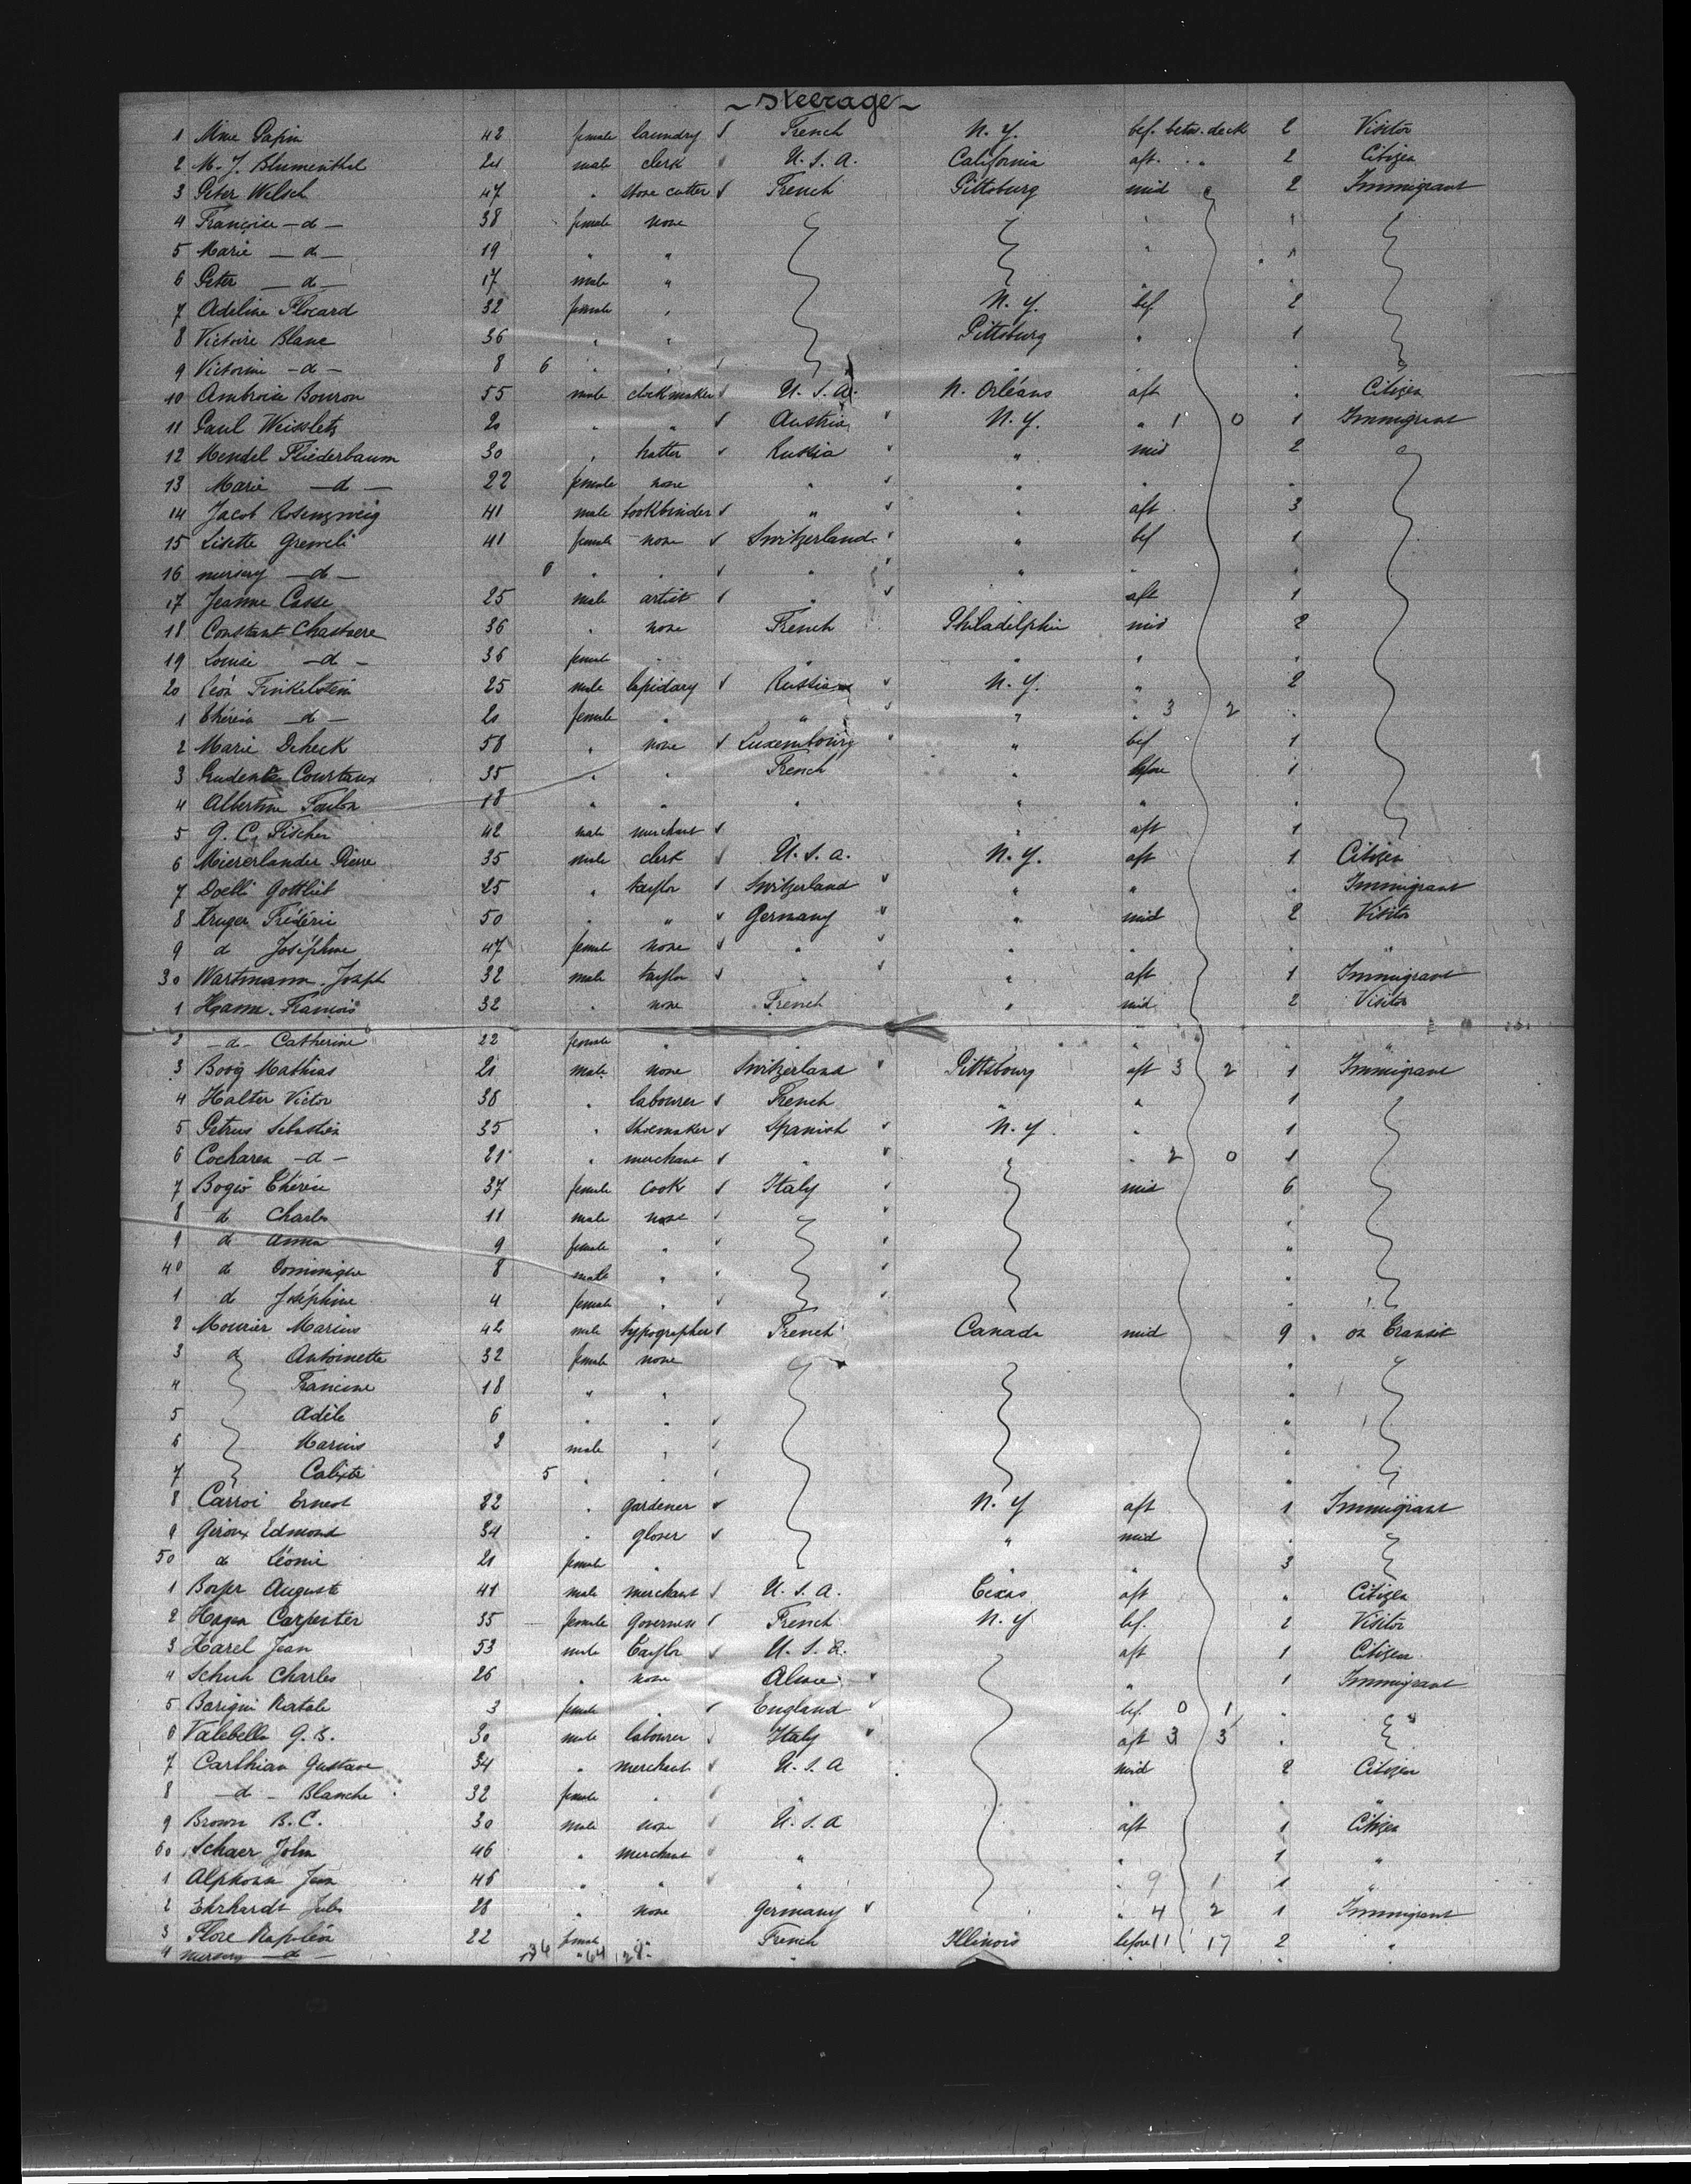 ~ steerage ~
1 Mme Papin 42 female laundry √ French N. Y. bef. betw. deck 2 Visitor
2 M. J. Blumenthel 24 male clerk √ U. S. A. California aft. " " 2 Citizen
3 Peter Welsch 47 " stone cutter √ French Pittsburg mid 2 Immigrant
4 Françoise — d — 38 female none
5 Marie — d — 19 " "
6 Peter — d — 17 male "
7 Adeline Flocard 32 female " N. Y. bef 2
8 Victoire Blanc 36 " " Pittsburg " 1
9 Victorine — d — 8 6 " " √ " "
10 Ambroise Bouron 55 male clockmaker √ U. S. A. N. Orléans aft " Citizen
11 Paul 20 " " √ Austria √ N. Y. " 1 0 1 Immigrant
12 Mendel Fliederbaum 30 " hatter √ Russia √ " mid 2
13 Marie — d — 22 female none " √ " "
14 Jacob Rosenzweig 41 male bookbinder √ " √ " aft 3
15 Lisette 41 female none √ Switzerland √ " bef 1
16 nursery — d — 6 " " √ " "
17 Jeanne Casse 25 male artist √ " √ aft 1
18 Constant Chastaere 36 " none French Philadelphia mid 2
19 Louise — d — 36 female " " " "
20 Léon Finkelstein 25 male lapidary √ Russian √ N. Y. " 2
1 — d — 20 female " " √ " " 3 2 "
2 Marie Deheck 58 " none √ Luxembourg √ " bef 1
3 Courtaux 35 " " French " before 1
4 Albertine Foulon 18 " " " " " "
5 G. C. Fischer 42 male merchant √ " aft 1
6 Miererlander Pierre 35 male clerk √ U. S. a. N. Y. aft 1 Citizen
7 Doelli Gottlieb 25 " taylor √ Switzerland √ " " " Immigrant
8 Kruger Frédéric 50 " " √ Germany √ " mid 2 Visitor
9 d Joséphine 47 female none √ " √ " " " "
30 Wartmann Joseph 32 male taylor √ " √ " aft 1 Immigrant
1 François 32 " none French " mid 2 Visitor
2 — d — Catherine 22 female " " " " " "
3 Boog Mathias 21 male none Switzerland √ Pittsbourg aft 3 2 1 Immigrant
4 Halter Victor 38 " labourer √ French " " 1
5 Petrus Sebastien 35 " shoemaker √ Spanish √ N. Y. " 1
6 Cocharen — d — 21 " merchant √ " √ " 2 0 1
7 Bogio Thérèse 37 female cook √ Italy √ mid 6
8 d Charles 11 male none √ √ "
9 d Anna 9 female " √ √ "
40 d Dominique 8 male " √ √ "
1 d Joséphine 4 female " √ √ "
2 Mourier Marius 42 male typographer √ French Canada mid 9 on transit
3 d Antoinette 32 female none "
4 Francine 18 " " "
5 Adèle 6 " " √ "
6 Marius 2 male " √ "
7 Calixte 5 " " √ "
8 Carroi Ernest 22 " gardener √ N. Y aft 1 Immigrant
9 Giroux Edmond 34 " glover √ " mid "
50 d Léonie 21 female " " " 3
1 Auguste 41 male merchant √ U. S. A. Texas aft " Citizen
2 Hagen Carpentier 35 female governess √ French N. Y bef. 2 Visitor
3 Harel Jean 53 male taylor √ U. S. A. aft 1 Citizen
4 Schuh Charles 26 " none √ " 1 Immigrant
5 3 female " √ England √ bef. 0 1 " "
6 Valebella G. B. 30 male labourer √ Italy √ aft 3 3 "
7 Carthian Gustave 34 " merchant √ U. S. A mid 2 Citizen
8 — d — Blanche 32 female " √ " " " "
9 Brown B. C. 30 male none √ U. S. A aft 1 Citizen
60 Schaer John 46 " merchant √ " " 1 "
1 Jean 46 " " √ " " 9 1 1 "
2 Ehrhardt Jules 28 " none Germany √ " 4 2 1 Immigrant
3 Flore 22 female " French Illinois before 11 17 2 "
4 nursery — d — 36 " 64 128 " " "